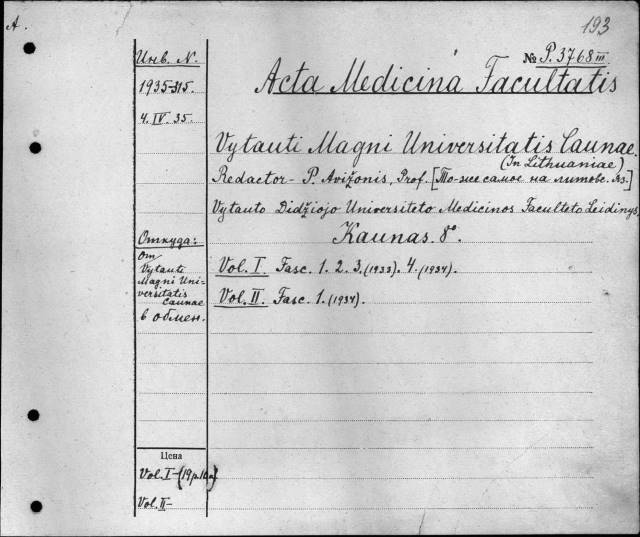 A.
193
Инв. N.
№ P. 3768 III
1935-315.
Acta Medicina Facultatis
4. IV. 35.
Vytauti Magni Universitatis Caunae.
(In Lithuaniae)
Redactor - P. Avižonis, Prof. [То-же самое на литовс. яз.]
Vytauto Didžiojo Universiteto Medicinos Faculteto Leidinys,
Kaunas. 8°.
Откуда:
От
Vytauti
Magni Uni-
versitatis
Caunae
в обмен.
Vol. I. Fasc. 1. 2. 3. (1933). 4. (1934).
Vol. II. Fasc. 1. (1934).
Цена
Vol. I-
Vol. II-